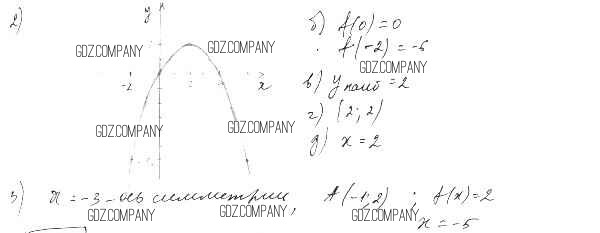 2)
y
б) f(0)=0
f(-2)=-6
в) y наиб = 2
г) (2; 2)
д) x = 2
-2
x
GDZ.COMPANY
GDZ.COMPANY
GDZ.COMPANY
GDZ.COMPANY
GDZ.COMPANY
3) x = -3 - ось симметрии, A(-1; 2) ; f(x)=2
x = -5
GDZ.COMPANY
GDZ.COMPANY
GDZ.COMPANY